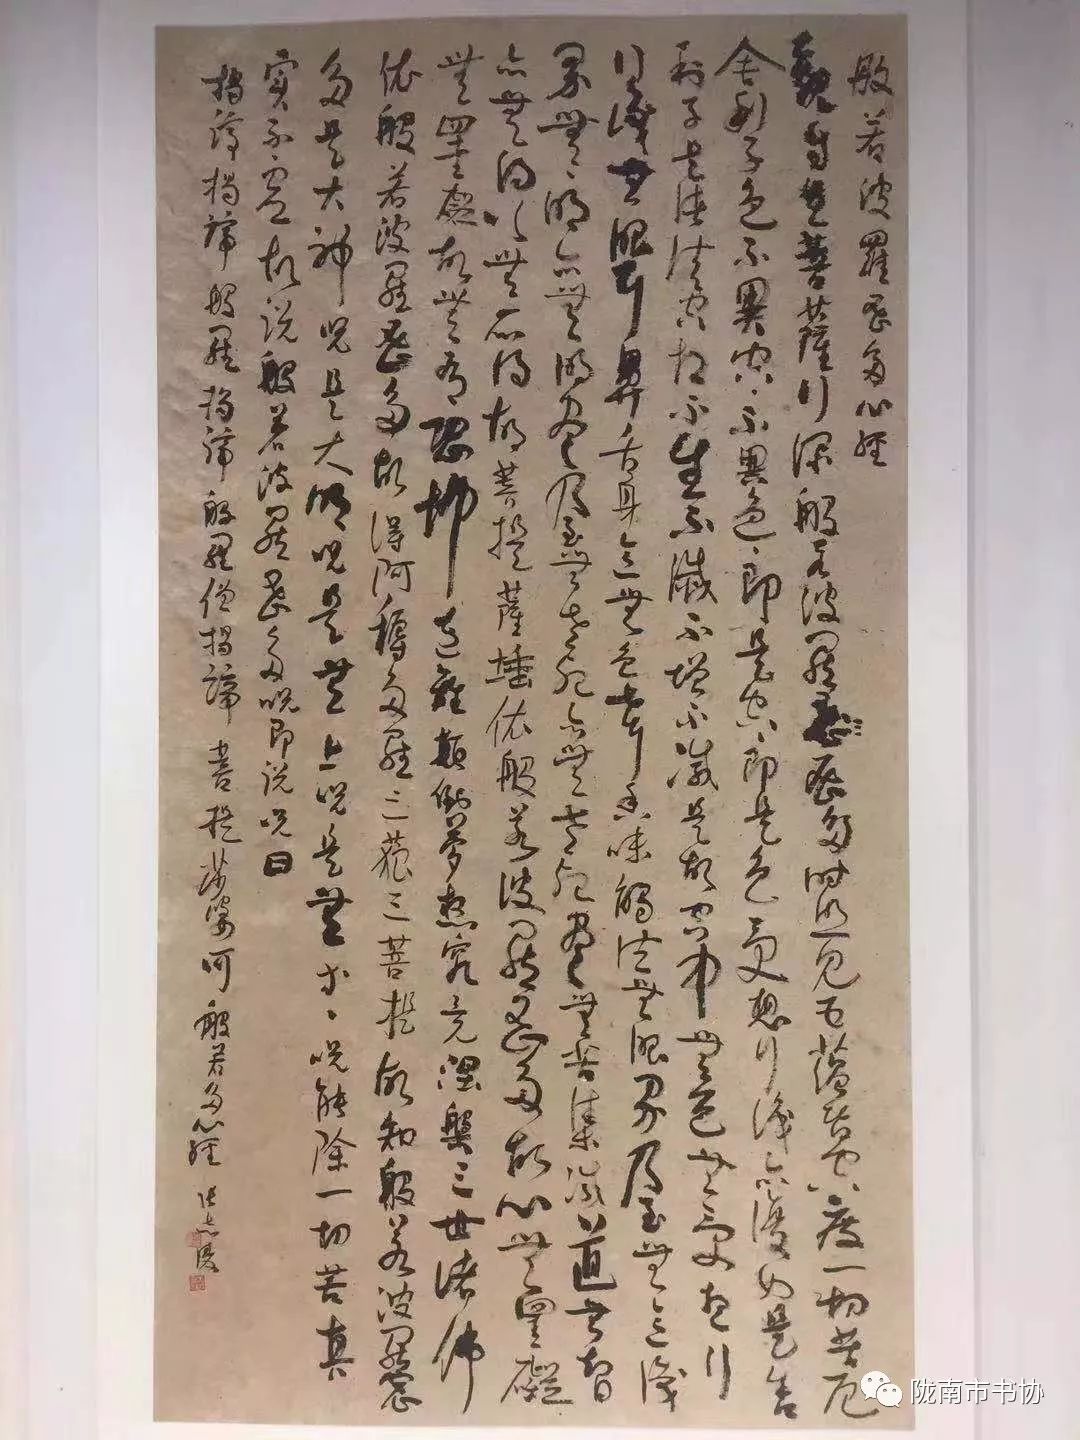 般若波羅蜜多心經
觀自在菩薩行深般若波羅蜜多時照見五蘊皆空度一切苦厄
舍利子色不異空空不異色色即是空空即是色受想行識亦復如是舍
利子是諸法空相不生不滅不增不減是故空中無色無受想行
識無眼耳鼻舌身意無色聲香味觸法無眼界乃至無意識
界無無明亦無無明盡乃至無老死亦無老死盡無苦集滅道無智
亦無得以無所得故菩提薩埵依般若波羅蜜多故心無罣礙
無罣礙故無有恐怖遠離顛倒夢想究竟涅槃三世諸佛
依般若波羅蜜多故得阿耨多羅三藐三菩提故知般若波羅蜜
多是大神咒是大明咒是無上咒是無等等咒能除一切苦真
實不虛故說般若波羅蜜多咒即說咒曰
揭諦揭諦般羅揭諦般羅僧揭諦菩提莎婆訶般若多心經
陇南市书协